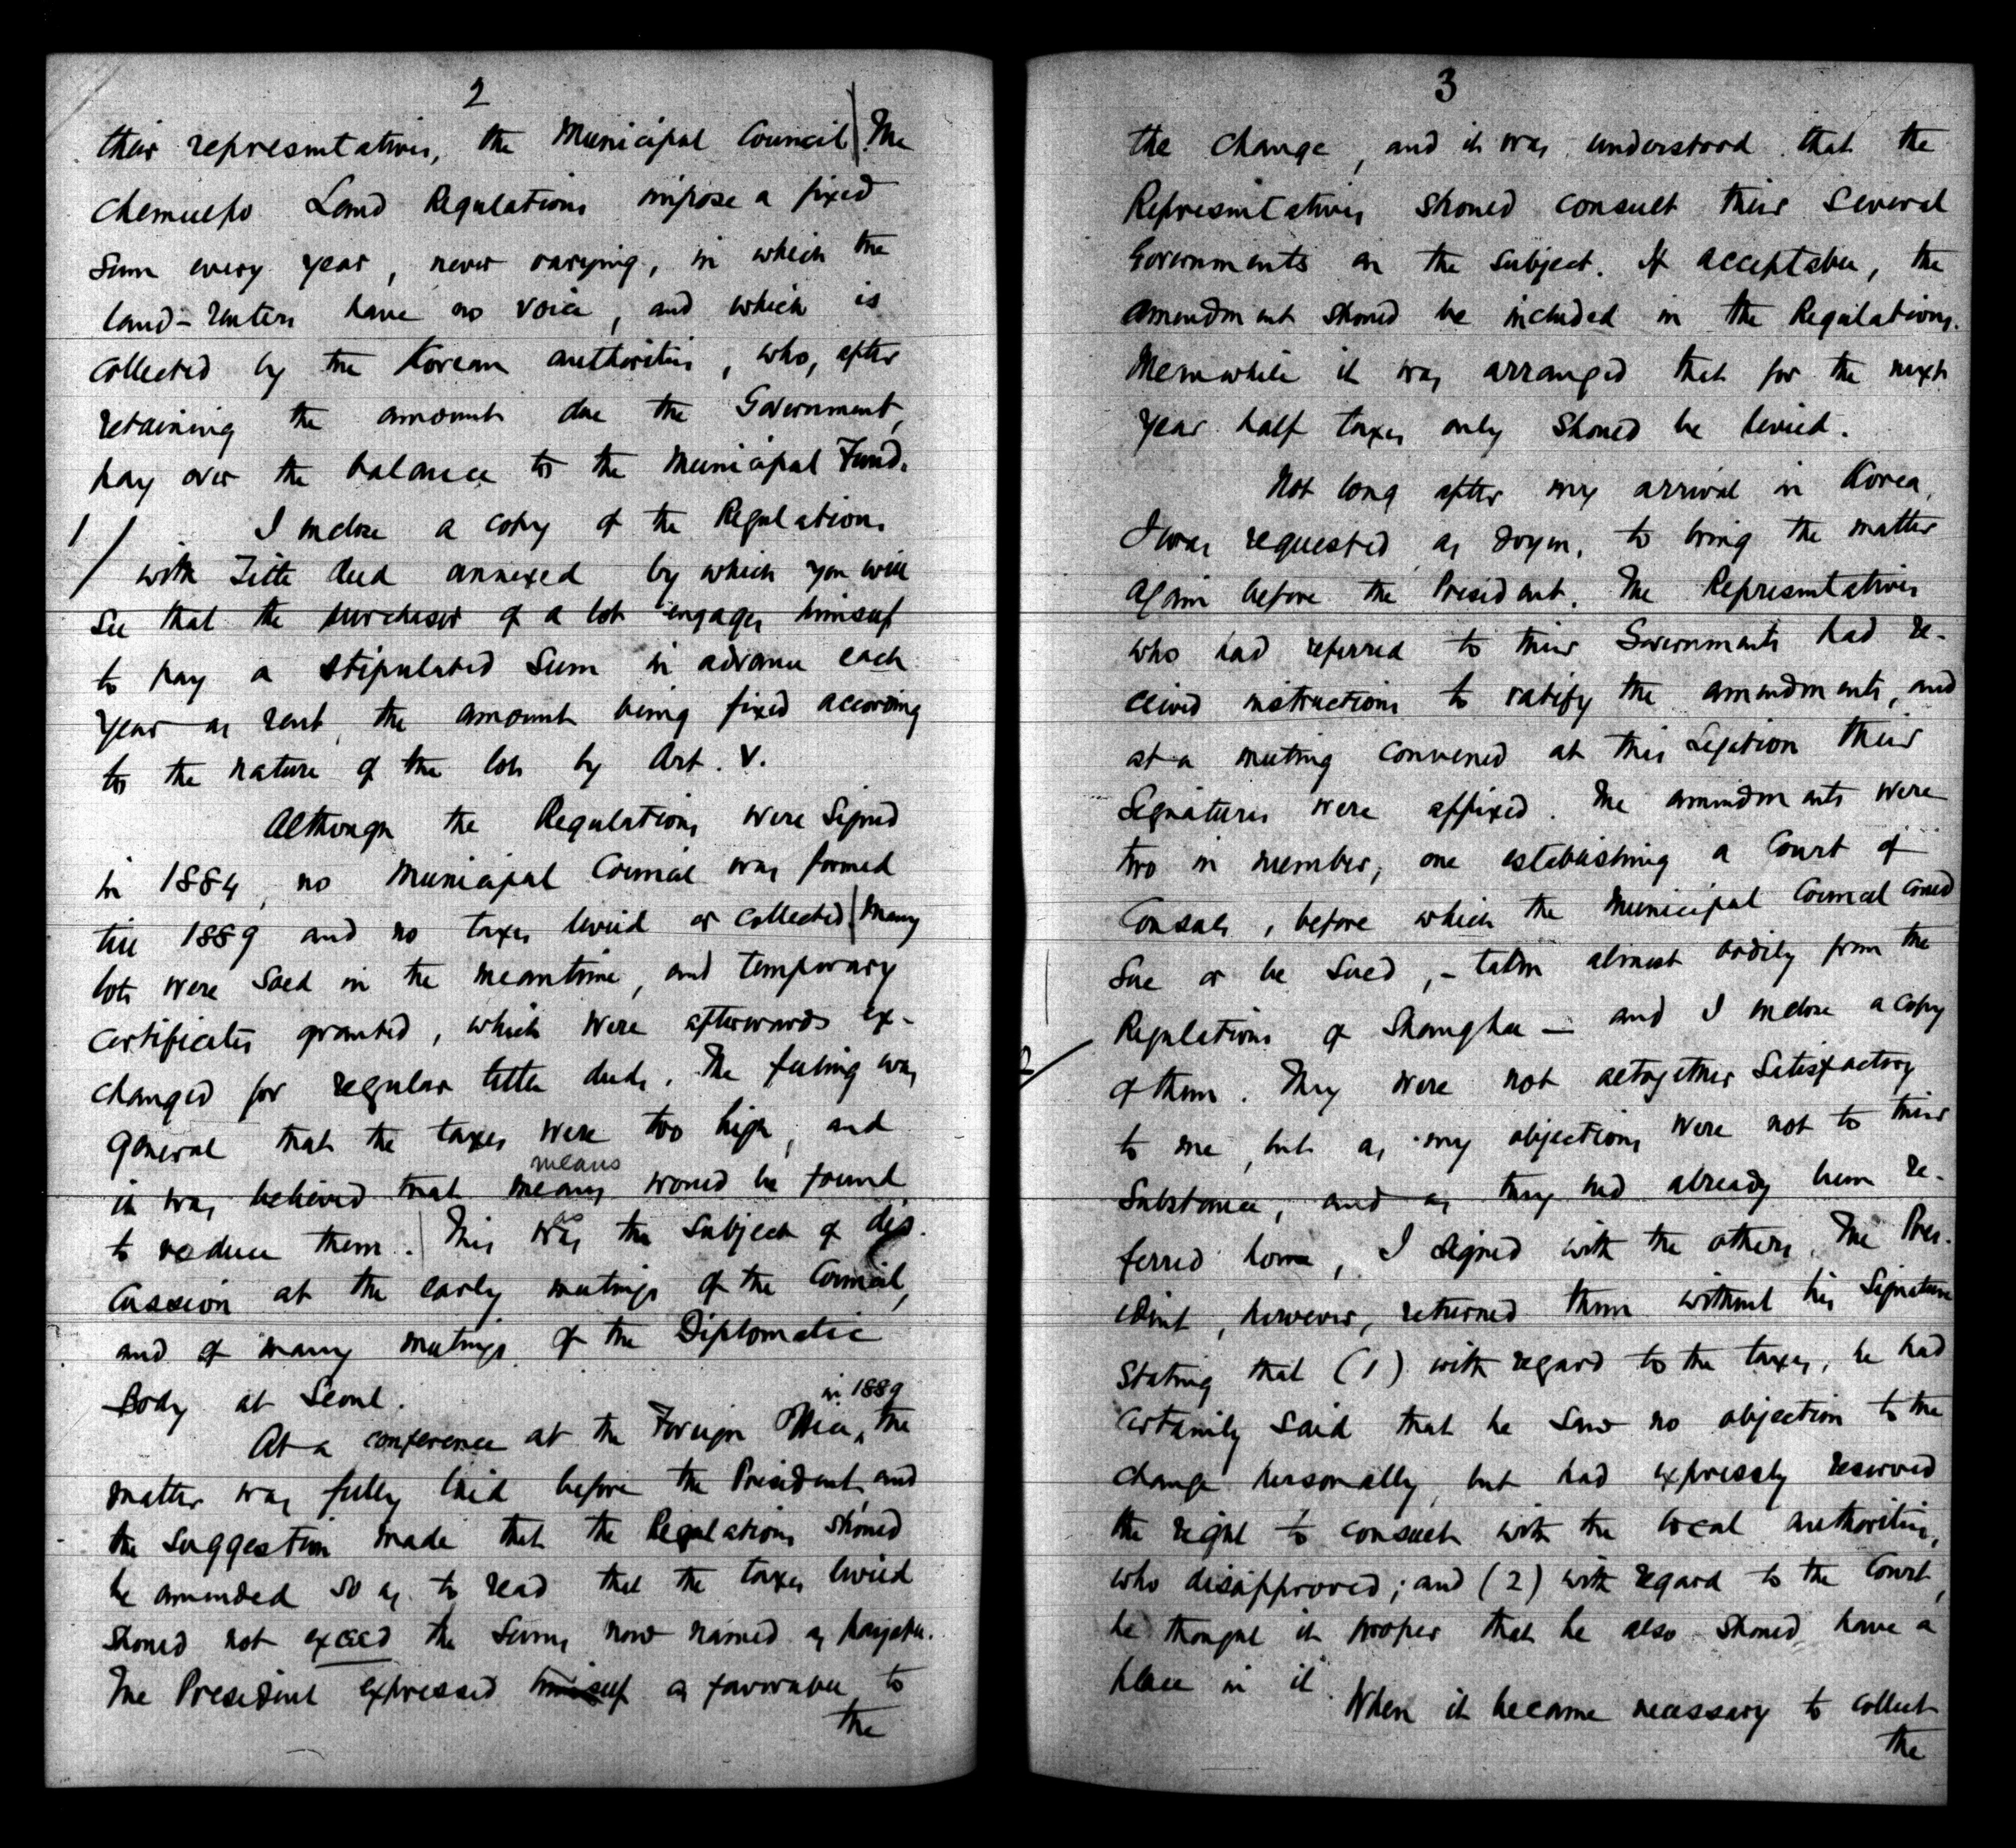 2
their representatives, the Municipal Council | The
Chemulpo Land Regulations impose a fixed
sum every year, never varying, in which the
land-renters have no voice, and which is
collected by the Korean authorities, who, after
retaining the amount due the Government,
pay over the balance to the Municipal Fund.
1/ I inclose a copy of the Regulations
with Title deed annexed by which you will
see that the purchaser of a lot engages himself
to pay a stipulated sum in advance each
year as rent, the amount being fixed according
to the nature of the lots by Art. V.
Although the Regulations were signed
in 1884, no Municipal Council was formed
till 1889 and no taxes levied or collected | Many
lots were sold in the meantime, and temporary
certificates granted, which were afterwards ex-
changed for regular title deeds. The feeling was
general that the taxes were too high, and
means
it was believed that means would be found
to reduce them. | This was the subject of dis-
cussion at the early meetings of the Council,
and of many meetings of the Diplomatic
Body at Seoul.
in 1889
At a conference at the Foreign Office, the
matter was fully laid before the President, and
the suggestion made that the Regulations should
be amended so as to read that the taxes levied
should not exceed the sums now named as payable.
The President expressed himself as favorable to
the
3
the change, and it was understood that the
Representatives should consult their several
Governments on the subject. If acceptable, the
amendment should be included in the Regulations.
Meanwhile it was arranged that for the next
year half taxes only should be levied.
Not long after my arrival in Korea,
I was requested, as doyen, to bring the matter
again before the President. The Representatives
who had referred to their Governments had re-
ceived instructions to ratify the amendments, and
at a meeting convened at this Legation their
signatures were affixed. The amendments were
two in number, one establishing a Court of
Consuls, before which the Municipal Council could
sue or be sued, - taken almost bodily from the
Regulations of Shanghai — and I inclose a copy
2/ of them. They were not altogether satisfactory
to me, but as my objections were not to their
substance, and as they had already been re-
ferred home, I signed with the others. The Pres-
ident, however, returned them without his signature
stating that (1) with regard to the taxes, he had
certainly said that he saw no objection to the
change personally, but had expressly reserved
the right to consult with the local authorities,
who disapproved; and (2) with regard to the Court,
he thought it proper that he also should have a
place in it.
When it became necessary to collect
the